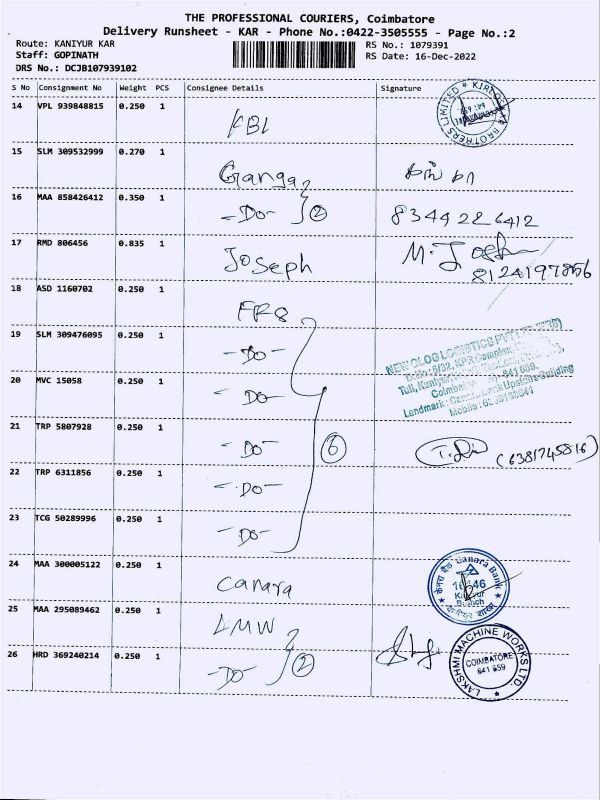 THE PROFESSIONAL COURIERS, Coimbatore
Delivery Runsheet - KAR - Phone No.:0422-3505555 - Page No.:2
Route: KANIYUR KAR
Staff: GOPINATH
DRS No.: DCJB107939102
RS No.: 1079391
RS Date: 16-Dec-2022
S No Consignment No Weight PCS Consignee Details Signature
14 VPL 939848815 0.250 1 KBL
15 SLM 309532999 0.270 1 Ganga
16 MAA 858426412 0.350 1 -Do- 2 8344226412
17 RMD 806456 0.835 1 Joseph 8124197856
18 ASD 1160702 0.250 1
19 SLM 309476095 0.250 1 -Do-
20 MVC 15058 0.250 1 -Do-
NEW GLOG LOGISTICS PVT LTD
Coimbatore
Landmark: Canara Bank Upstairs Building
Mobile:
21 TRP 5807928 0.250 1 -Do- 6 (6381745816)
22 TRP 6311856 0.250 1 -Do-
23 TCG 50289996 0.250 1 -Do-
24 MAA 300005122 0.250 1 Canara
Canara Bank
Branch
25 MAA 295089462 0.250 1 LMW
26 HRD 369240214 0.250 1 -Do- 2
LAKSHMI MACHINE WORKS LTD.
COIMBATORE
641 659